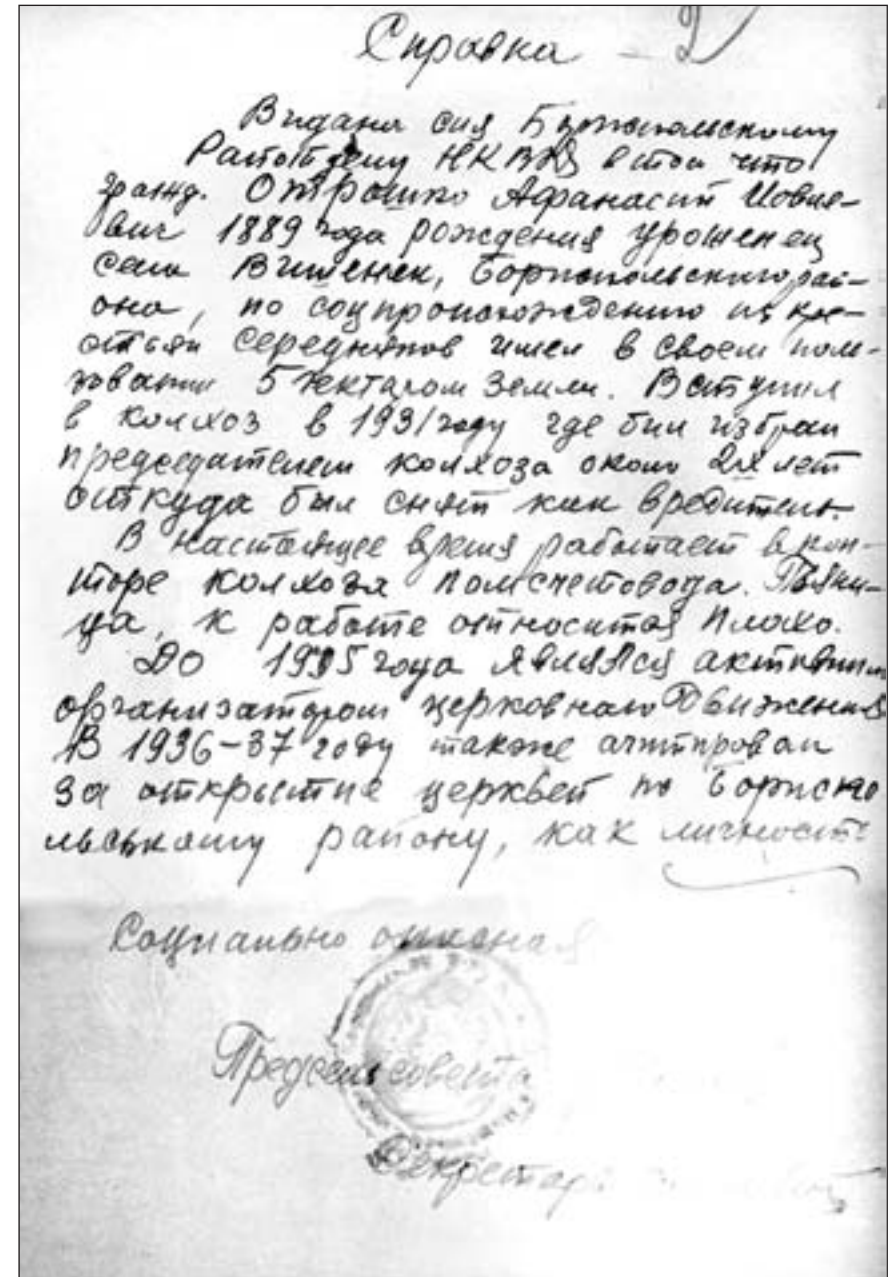 Справка - 2
Видана сия Бориспольскому
Райотделу НКВД в том что
гражд. Отрошко Афанасий Иовле-
вич 1889 года рождения урошенец
села Вишенек, Бориспольского рай-
она, по соцпроисхождению из кре-
стьян середняков имел в своем поль-
зовании 5 гектаром земли. Вступил
в колхоз в 1931 году где бил избран
председателем колхоза около 2-х лет
откуда был снят как вредитель.
В настоящее время работает в кон-
торе колхоза помсчетовода. Пьяни-
ца, к работе относится плохо.
До 1935 года являлся активним
организатором церковного движения
В 1936-37 году также агитировал
за открытие церквей по Бориспо
льському району, как личность
Социально опасная
Предсельсовета
Секретарь